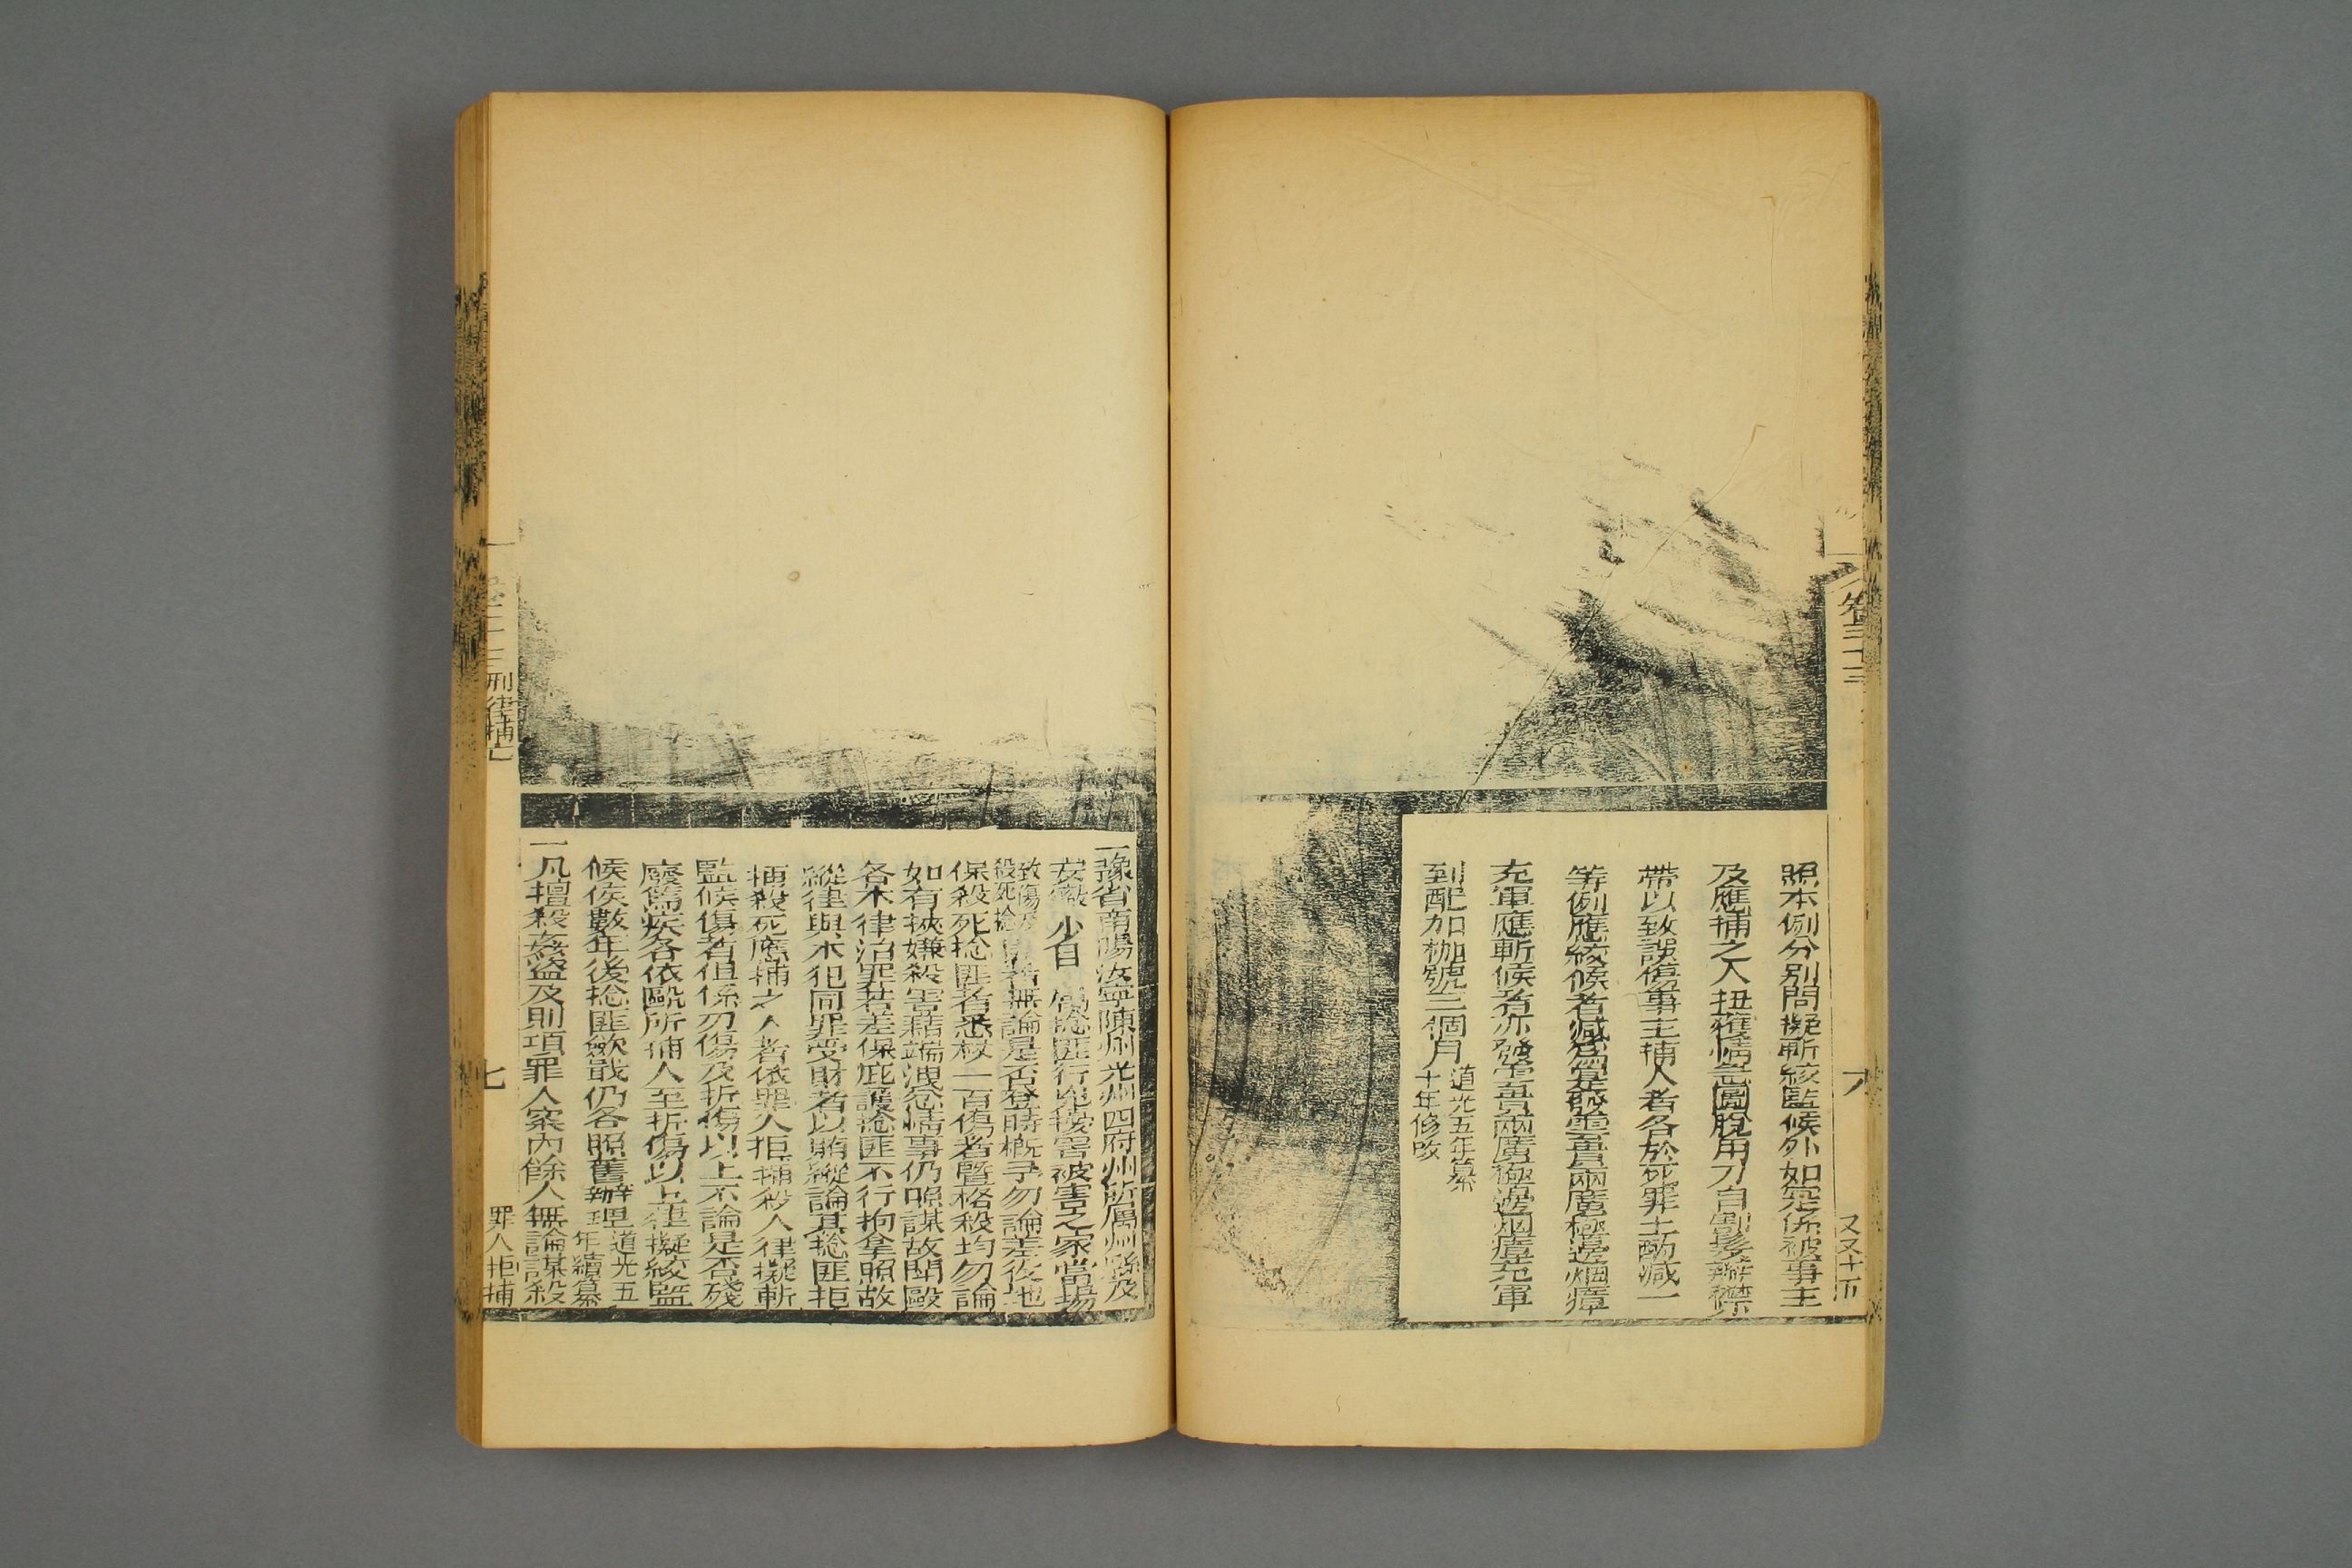 卷三十三
又又十五
照本例分別問擬斬絞監候外如寃係被事主
及應捕之人扭獲情急圖脫用刀自割髮辮襟
帶以致誤傷事主捕人者各於死罪上酌減一
等例應絞候者減爲實發雲貴兩廣極邊烟瘴
充軍應斬候者亦發雲貴兩廣極邊烟瘴充軍
到配加枷號三個月
道光五年纂
十年修改
一豫省南陽汝寧陳州光州四府州所屬州縣及
安徽 捻匪行兇擾害被害之家當場
致傷及
殺死捻匪者無論是否登時概予勿論差役地
保殺死捻匪者悉杖一百傷者曁格殺均勿論
如有挾嫌殺害藉端洩忿情事仍照謀故鬬毆
各本律治罪若差保庇護捻匪不行拘拿照故
縱律與本犯同罪受財者以賄縱論其捻匪拒
捕殺死應捕之人者依罪人拒捕殺人律擬斬
監候傷者但係刃傷及折傷以上不論是否殘
廢篤疾各依毆所捕人至折傷以上律擬絞監
候俟數年後捻匪歛戢仍各照舊辦理
道光五
年續纂
一凡擅殺姦盜及別項罪人案內餘人無論謀殺
刑律捕亡
七
罪人拒捕